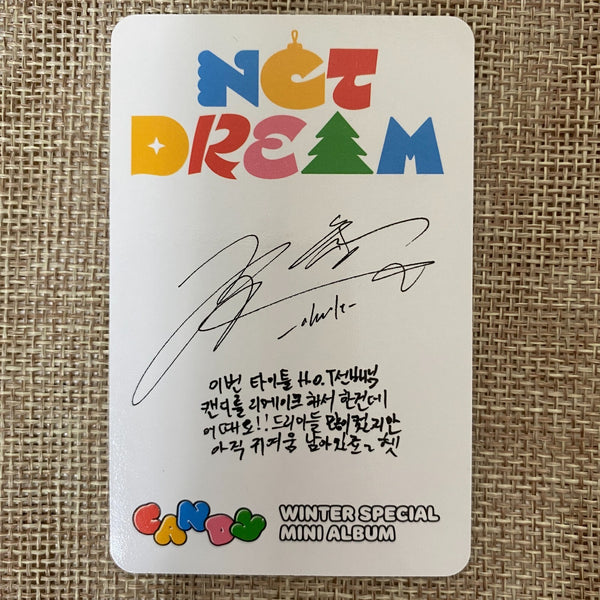 NCT
DREAM
이번 타이틀 H.O.T선배님
캔디를 리메이크 해서 한건데
어때요!! 드리미들 많이 컸지만
아직 귀여움 남아있죠? 쳇
CANDY
WINTER SPECIAL
MINI ALBUM